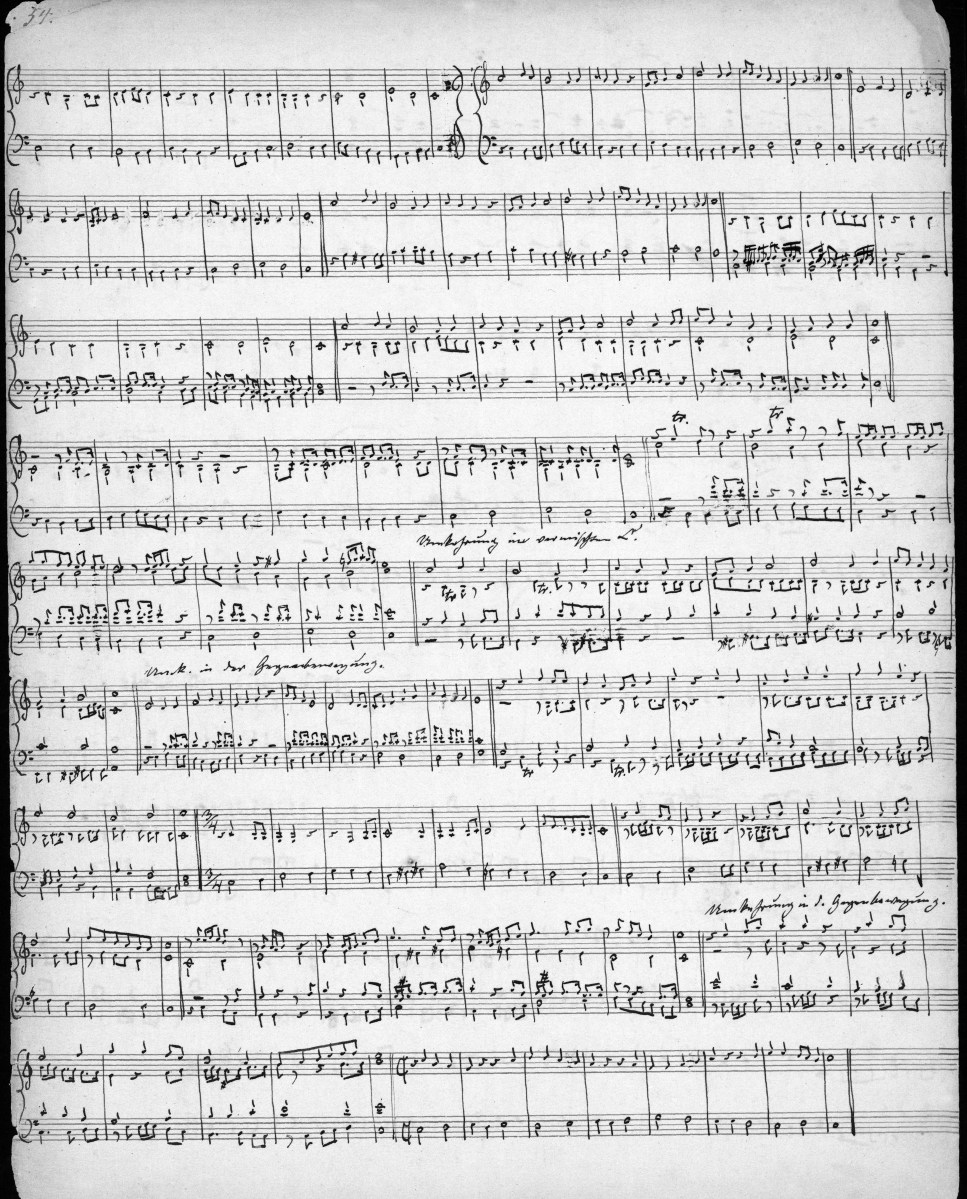 34.
tr. tr.
Umkehrung im vermischten C.
Umk. in der Gegenbewegung.
tr. tr.
3/4
3/4
Umkehrung in d. Gegenbewegung.